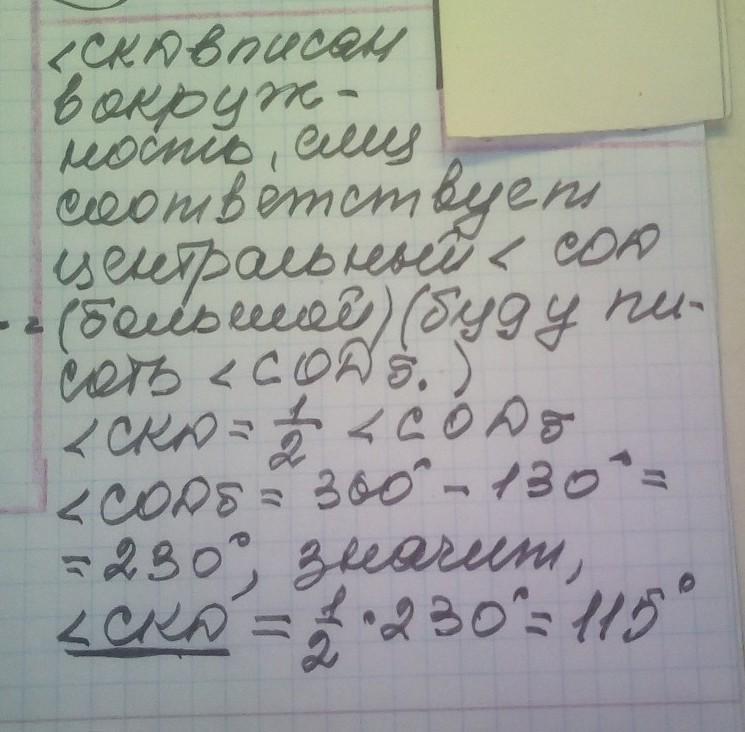 <СКД вписан
в окруж-
ность, ему
соответствует
центральный < СОД
(большой) (буду пи-
сать < СОДб.)
<СКД = 1/2 <СОДб
<СОДб = 360° - 130° =
= 230°, значит,
<СКД = 1/2 · 230° = 115°